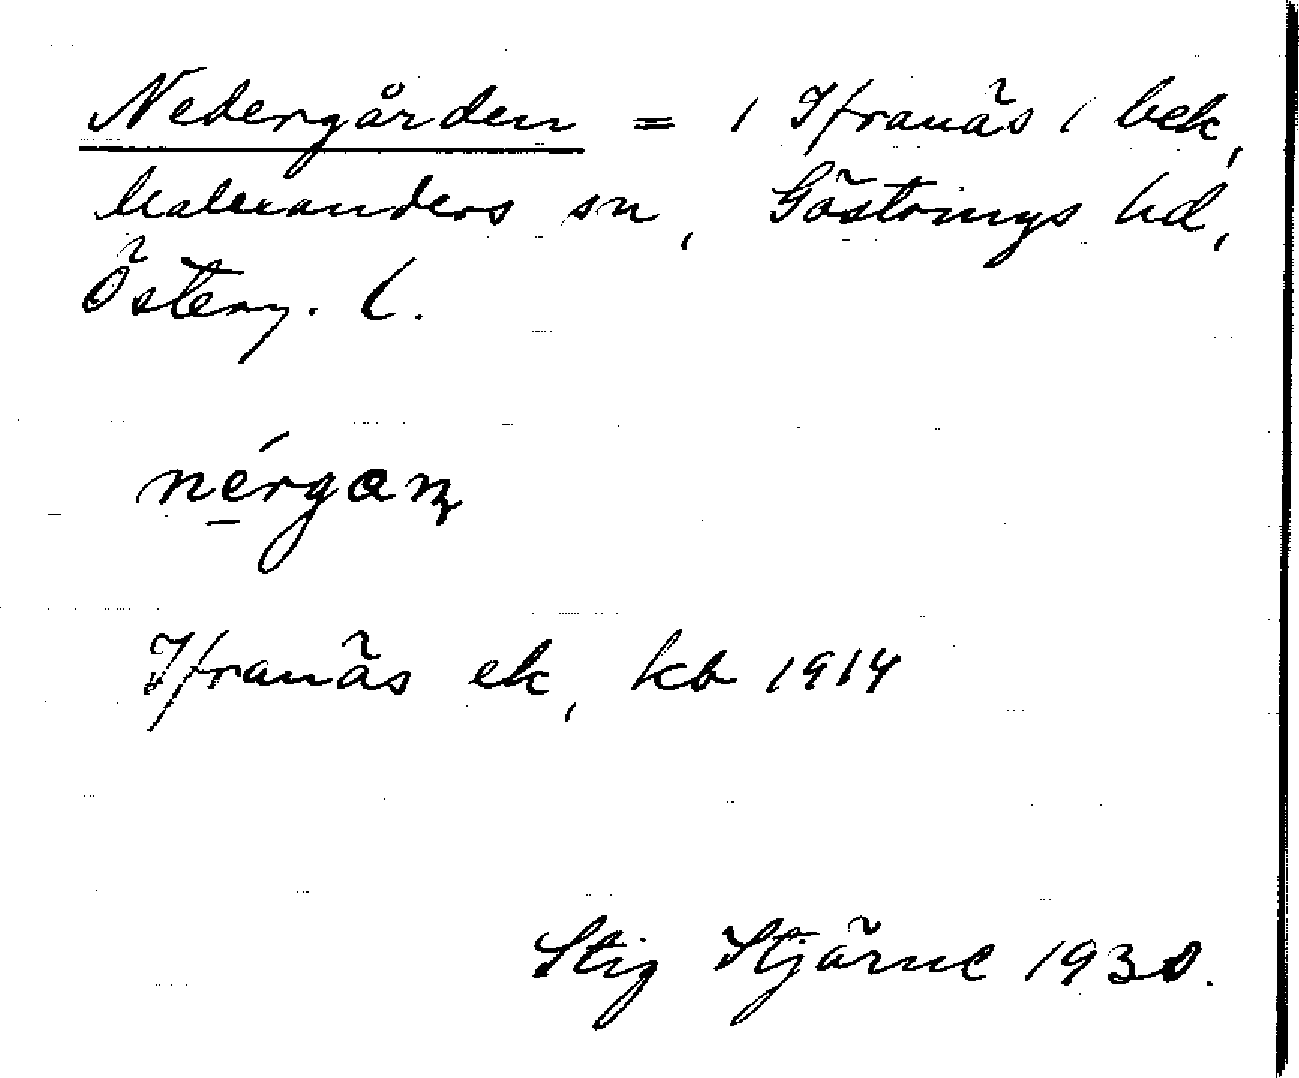 Nedergården = 1 Ifranäs 1 bek,
Malexanders sn, Göstrings hd,
Österg. l.
nérgaɳ
Ifranäs ek, kb 1914
Stig Stjärne 1930.